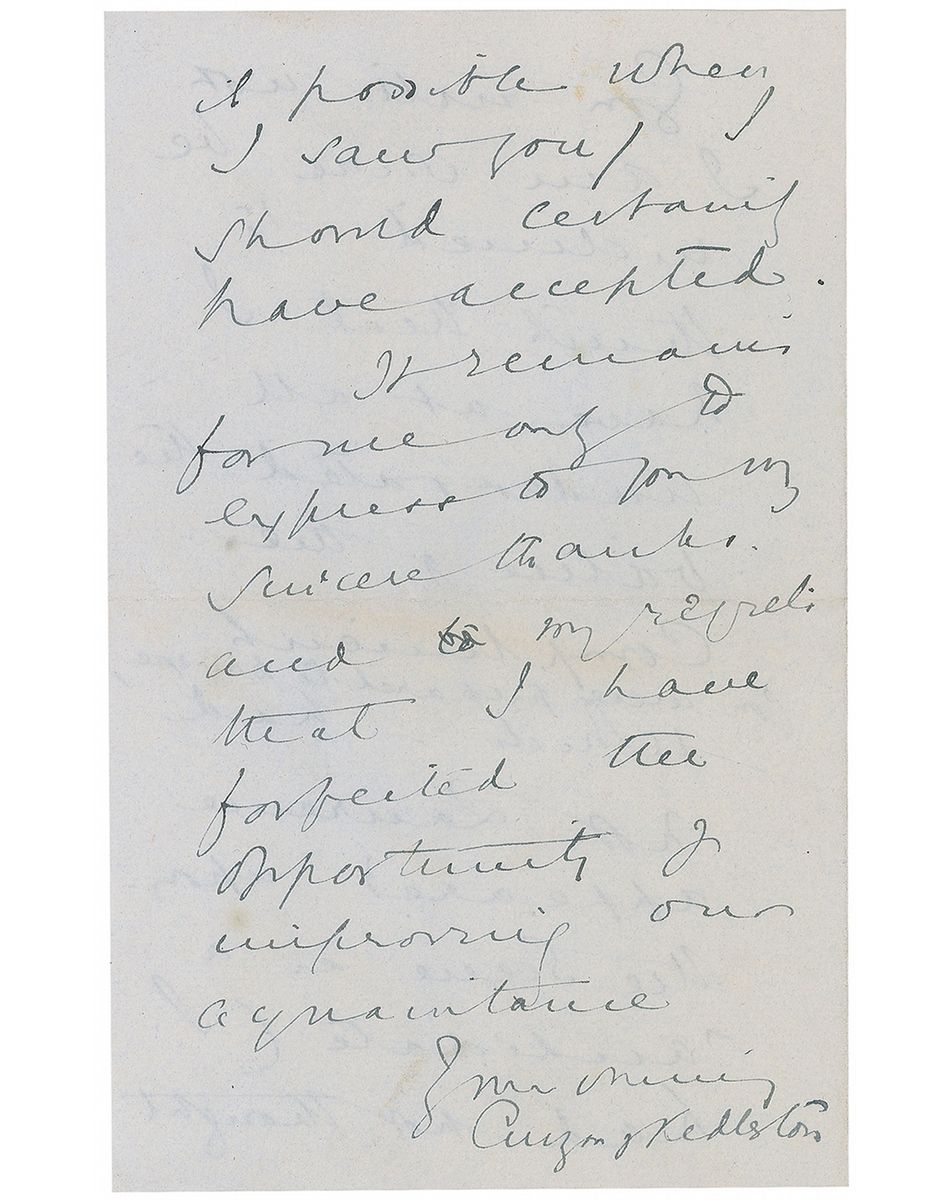 it possible when
I saw you)
should certainly
have accepted.
It remains
for me only to
express to you my
sincere thanks.
and my regrets
that I have
forfeited the
opportunity of
improving our
acquaintance
Yours
Curzon of Kedleston